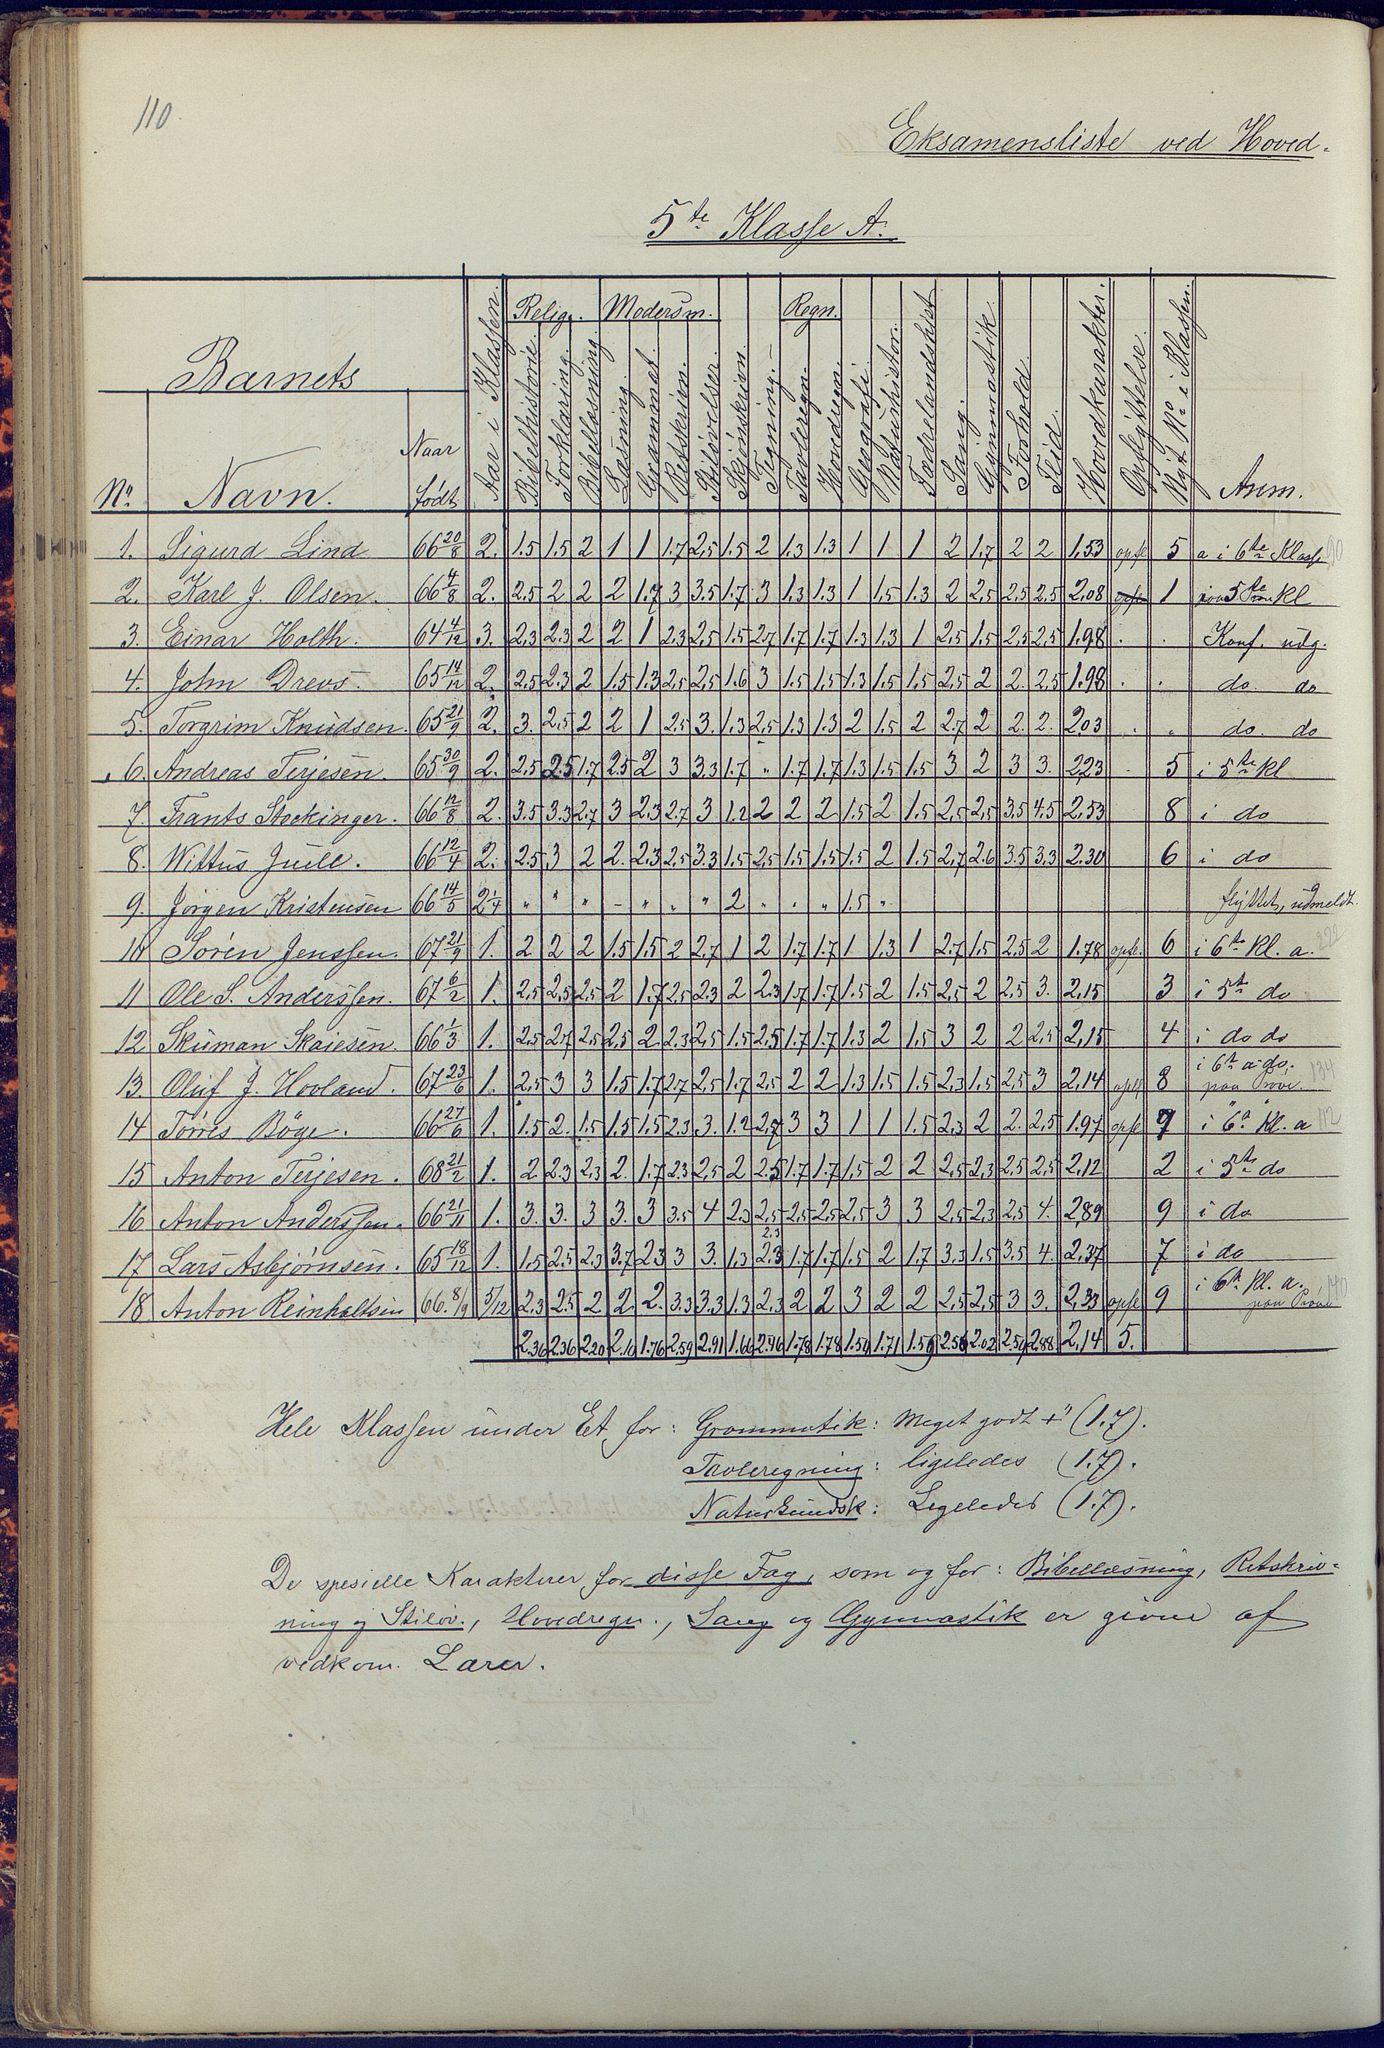 110
Eksamensliste ved Hoved-
5te Klasse A.
Barnets
No. Navn. Naar født
Aar i Klassen.
Relig. Bibelhistorie. Forklaring. Bibellæsning.
Modersm. Læsning. Grammat. Retskrivn. Stiløvelser.
Skjönskrivn. Tegning.
Regn. Tavleregn. Hovedregn.
Geografi. Naturhistor. Fædrelandshist. Sang. Gymnastik. Forhold. Flid. Hovedkarakter. Opflyttelse. Nyt No i Klassen. Anm.
1. Sigurd Lind 66 20/8 2. 1.5 1.5 2 1 1 1.7 2,5 1.5 2 1.3 1.3 1 1 1 2 1.7 2 2 1,53 opfl 5 a i 6te Klasse
2. Karl J. Olsen. 66 4/8 2. 2.5 2 2 2 1.7 3 3.5 1.7 3 1.3 1.3 1 1.5 1.3 2 2,5 2,5 2,5 2,08 opfl 1 5te kl
3. Einar Holth. 64 4/12 3. 2.3 2.3 2 2 1 2.3 2,5 1.5 2.7 1.7 1.7 1.3 1.3 1 2,5 1.5 2,5 2,5 1.98 . . Konf. udg.
4. John Drevs. 65 14/12 2. 2,5 2.3 2 1.5 1.3 2,5 2,5 1.6 3 1.5 1.5 1.3 1.5 1.5 2,5 2 2. 2,5 1.98 . . do. do
5. Torgrim Knudsen. 65 21/9 2. 3. 2,5 2 2 1 2,5 3. 1.3 2,5 1.3 1.3 2 1.5 2 2.7 2 2. 2. 2,03 . " do. do
6. Andreas Terjesen. 65 30/9 2. 2.5 2.5 1.7 2.5 2 3 3.3 1.7 " 1.7 1.7 1.3 1.5 1.5 3 2 3 3. 2,23 . 5 i 5te kl
7. Frants Stockinger. 66 12/8 2. 3.5 3.3 2.7 3 2,3 2.7 3 1.2 2 2 2 1.5 2 1.5 2,5 2,5 3,5 4.5 2,53 8 i do
8. Wittus Juell. 66 12/4 2. 2.5 3 2 2. 2.3 2,5 3.3 1.5 2,5 1.5 1.5 1.5 2 1.5 2,7 2.6 3.5 3.3 2.30 6 i do
9. Jörgen Kristensen 66 14/5 2 1/4 " " " – " " " 2 " " " 1.5 " flyttet, udmeldt.
10 Sören Jenssen. 67 21/9 1. 2 2 2 1.5 1.5 2 2,7 1 2 1.7 1.7 1 1.3 1 2.7 1.5 2.5 2 1.78 opfl. 6 i 6te kl. a. 222
11 Ole S. Anderssen. 67 6/2 1. 2,5 2,5 2,5 2 1.7 2,5 2.3 2 2.3 1.7 1.7 1.5 2 1.5 2,5 2 2,5 3. 2,15 3 i 5te do
12. Skuman Skaiesen. 66 1/3 1. 2,5 2.7 2,5 2,5 2. 2.3 2,5 1.5 2,5 1.7 1.7 1.3 2 1.5 3 2 2 2,5 2,15 4 i do do
13. Oluf J. Hovland. 67 23/6 1. 2,5 3 3 1.5 1.7 2.7 2,5 1.7 2,5 2 2 1.3 1.5 1.5 2.3 1.5 2,5 3 2,14 opfl 8 i 6te a do. paa Prøve. 134
14 Törris Böge. 66 27/6 1. 1.5 2. 1.5 1.5 1.5 2.3 3. 1.2 2,7 3 3 1 1 1.5 2.3 2 2. 2,5 1.97 opfl 7 i 6te Kl. a 112
15 Anton Terjesen. 68 21/2 1. 2 2.3 2,3 2. 1.7 2.3 2,5 2 2.5 1.7 1.7 1.5 2 2 2,5 2,3 2,5 2,5 2,12 2 i 5te do
16 Anton Anderssen. 66 21/11 1. 3. 3. 3 3. 3 3.5 4 2.3 2,5 2,5 2,5 2,5 3 3 2,5 2.3 2,5 4. 2,89 9 i do
17. Lars Asbjørnsen. 65 18/12 1. 1.5 2.5 2.3 3.7 2.3 3 3. 1.3 2.3 1.7 1.7 1.5 2 1.7 3.3 1.5 3.5 4. 2,37 7 i do
18. Anton Reinholtsen 66. 8/9 5/12 2.3 2.5 2 2. 2. 3.3 3.3 1.3 2.3 2 2 3 2 2 2,5 2,5 3 3. 2,33 opfl 9 i 6te kl. a. paa Prøve 140
2.36 2.36 2.20 2.10 1.76 2.59 2.91 1.66 2.46 1.78 1.78 1.50 1.71 1.56 2.56 2.02 2.59 2.88 2,14 5.
Hele Klassen under Et for: Grammatik: Meget godt + (1.7).
Tavleregning: ligeledes (1.7).
Naturkundsk: Ligeledes (1.7).
De spesielle Karakterer for disse Fag, som og for: Bibellæsning, Retskriv-
ning og Stiløv., Hovedregn., Sang og Gymnastik er givne af
vedkom. Lærer.